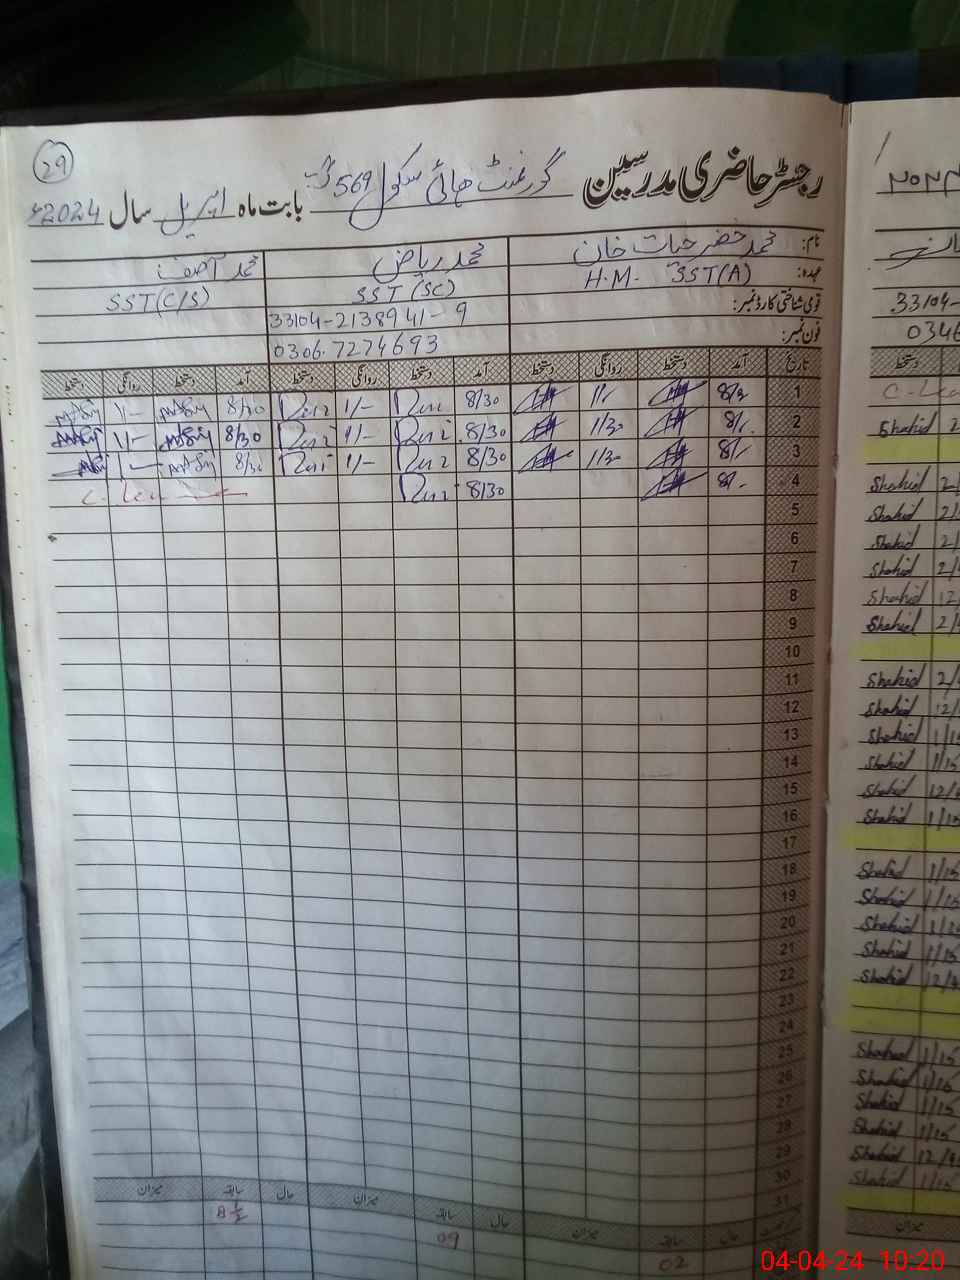 29
رجسٹر حاضری مدرسین گورنمنٹ ہائی سکول 569 گ ب بابت ماہ اپریل سال 2024ء
نام: محمد خضر حیات خان محمد ریاض محمد آصف
عہدہ: H.M. SST(A) SST (SC) SST(C/S)
قومی شناختی کارڈ نمبر: 33104-2138941-9
فون نمبر: 0306.7274693
تاریخ آمد دستخط روانگی دستخط آمد دستخط روانگی دستخط آمد دستخط روانگی دستخط
1 8/30 1/- 8/30 1/-
2 8/- 1/30 8/30 1/- 8/30 1/-
3 8/- 1/30 8/30 1/- 8/30 1/-
4 8/- 8/30
5
6
7
8
9
10
11
12
13
14
15
16
17
18
19
20
21
22
23
24
25
26
27
28
29
30
31
حال سابقہ میزان حال سابقہ میزان حال سابقہ میزان
02 09 8 1/2
33104-
0346
دستخط
Shahid 2
Shahid 2/
Shahid 2/
Shahid 2/
Shahid 2/
Shahid 12/
Shahid 2/
Shahid 2/
Shahid 12/
Shahid 1/15
Shahid 1/15
Shahid 12/
Shahid 1/15
Shahid 1/15
Shahid 1/15
Shahid 1/15
Shahid 1/15
Shahid 12/
Shahid 1/15
Shahid 1/15
Shahid 1/15
Shahid 1/15
Shahid 12/
Shahid 1/15
میزان
04-04-24 10:20